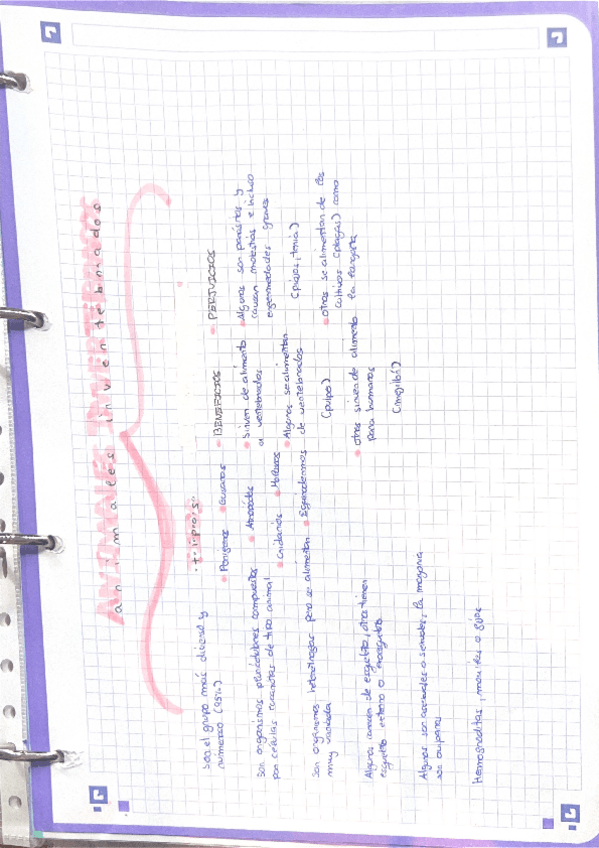 ANIMALES INVERTEBRADOS
animales invertebrados
Son el grupo más diverso y
numeroso (95%)
Son organismos pluricelulares compuestos
por células eucariotas de tipo animal
Son organismos heterótrofos para se alimentan
muy variada
Algunos carecen de esqueleto, otros tienen
esqueleto externo o exoesqueleto
Algunos son asexuales o sexuales, la mayoría
son oviparos
Hermafroditas, móviles o fijos
·tipos·
Poríferos
Gusanos
Artrópodos
Cnidarios
Moluscos
Equinodermos
BENEFICIOS
Sirven de alimento
a vertebrados
Algunos se alimentan
de vertebrados
(pulpo)
otros sirven de alimento
para humanos
(mejillón)
PERJUICIOS
Algunos son parásitos y
causan molestias e incluso
enfermedades graves
(piojos, tenia)
otros se alimentan de los
cultivos (plagas) como
la langosta